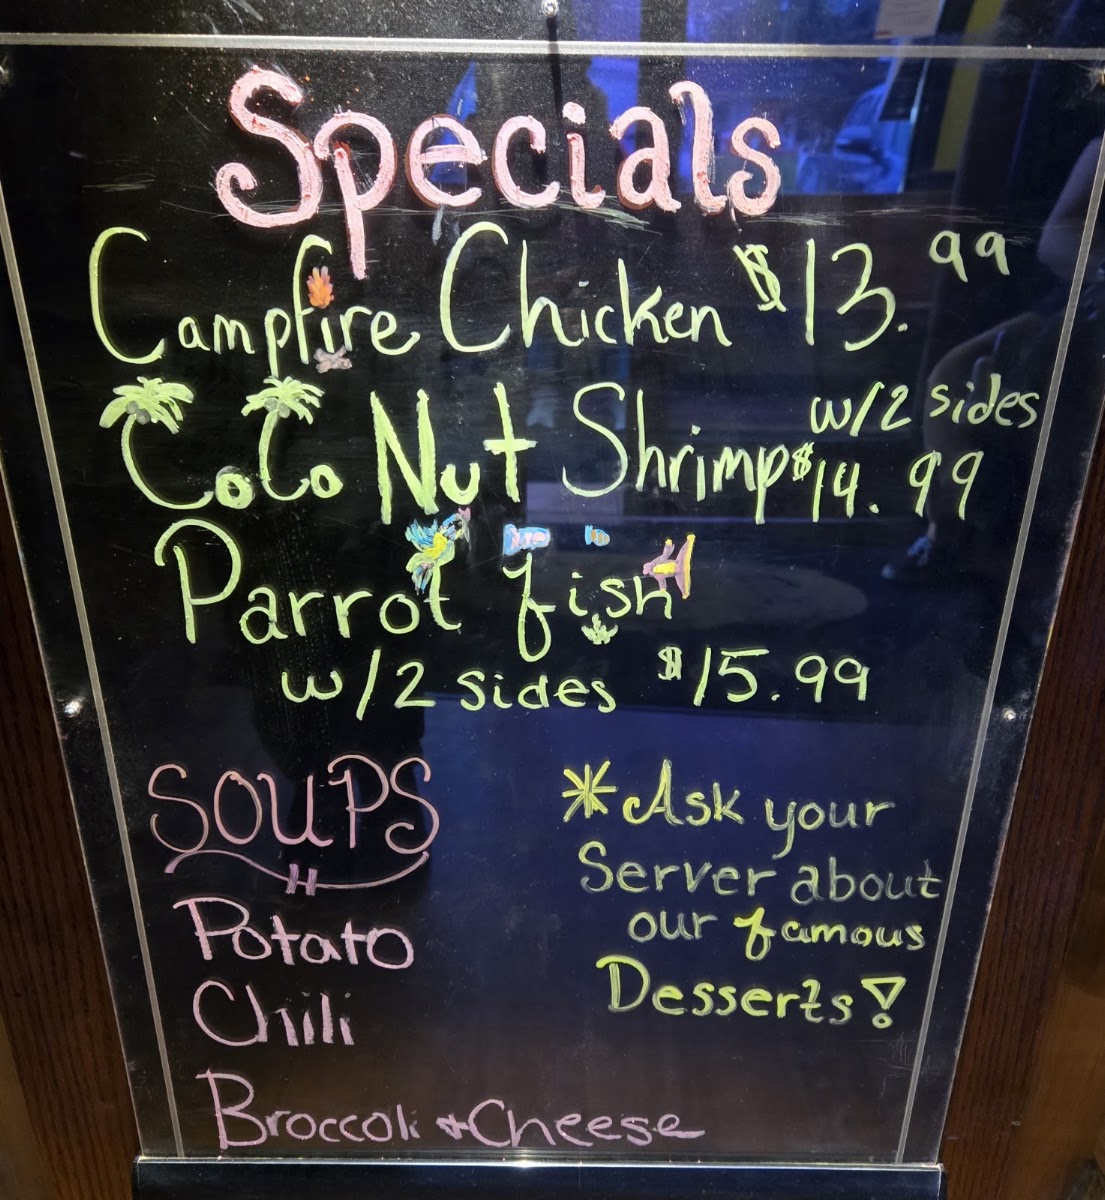 Specials
Campfire Chicken $13.99
CoCoNut Shrimp w/2 sides $14.99
Parrot fish
w/2 sides $15.99
SOUPS
Potato
Chili
Broccoli + Cheese
*Ask your
Server about
our famous
Desserts!